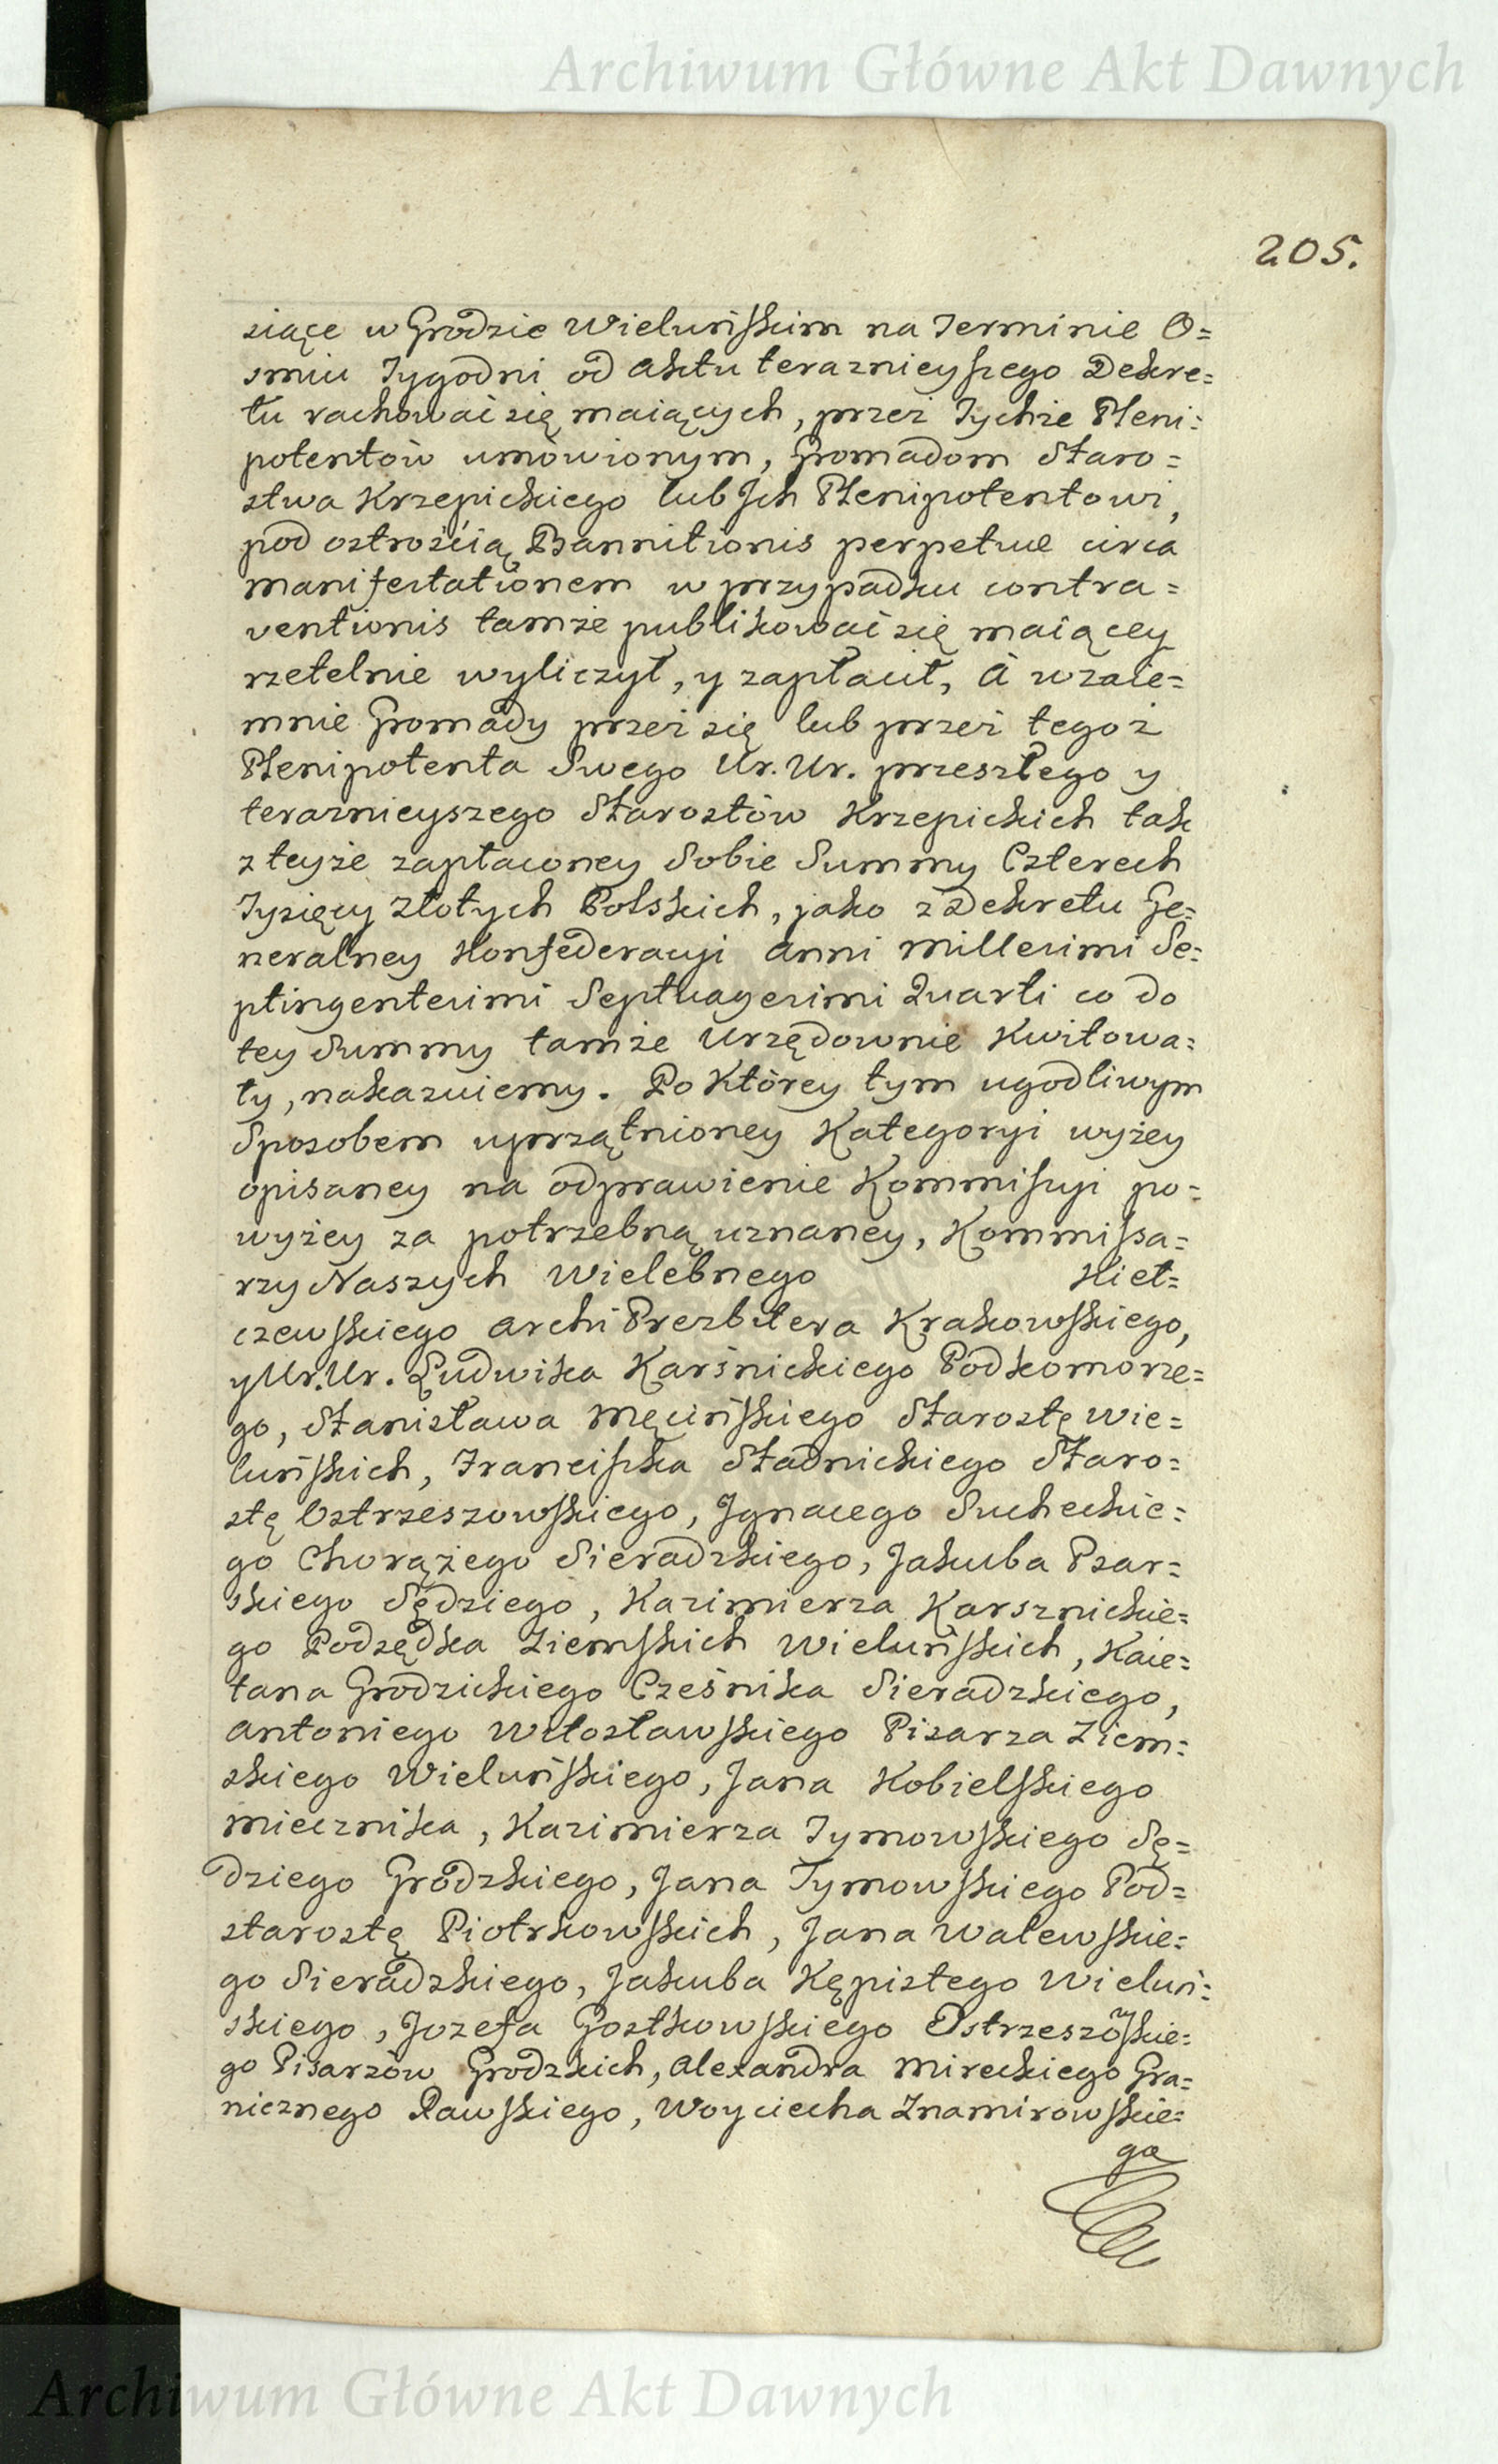 Archiwum Główne Akt Dawnych
205.
siące w Grodzie Wieluńskim na Terminie O=
smiu Tygodni od Aktu teraznieyszego Dekre=
tu rachować się maiących, przez Tychże Pleni=
potentów umówionym, Gromadom Staro=
stwa Krzepickiego lub Jch Plenipotentowi,
pod ostrością Bannitionis perpetuæ circa
manifestationem w przypadku contra=
ventionis tamże publikować się maiącey
rzetelnie wyliczył, y zapłacił, à wzaie=
mnie Gromady przez się lub przez tegoż
Plenipotenta Swego Ur. Ur. przeszłego y
teraznieyszego Starostów Krzepickich tak
z teyże zapłaconey Sobie Summy Czterech
Tysięcy Złotych Polskich, jako z Dekretu Ge=
neralney Konfederacyi Anni Millesimi Se=
ptingentesimi Septuagesimi Quarti co do
tey Summy tamże Urzędownie Kwitowa=
ły, nakazuiemy. Po Którey tym ugodliwym
Sposobem uprzątnioney Kategoryi wyżey
opisaney na odprawienie Kommissyi po=
wyżey za potrzebną uznaney, Kommissa=
rzy Naszych Wielebnego Kieł=
czewskiego Archi Prezbitera Krakowskiego,
y Ur. Ur. Ludwika Karśnickiego Podkomorze=
go, Stanisława Męcińskiego Starostę Wie=
luńskich, Franciszka Stadnickiego Staro=
stę Ostrzeszowskiego, Jgnacego Sucheckie=
go Chorążego Sieradzkiego, Jakuba Psar=
skiego Sędziego, Kazimierza Karsznickie=
go Podsędka Ziemskich Wieluńskich, Kaie=
tana Grodzickiego Cześnika Sieradzkiego,
Antoniego Witosławskiego Pisarza Ziem=
skiego Wieluńskiego, Jana Kobielskiego
Miecznika, Kazimierza Tymowskiego Sę=
dziego Grodzkiego, Jana Tymowskiego Pod=
starostę Piotrkowskich, Jana Walewskie=
go Sieradzkiego, Jakuba Kępistego Wieluń=
skiego, Jozefa Gostkowskiego Ostrzeszowskie=
go Pisarzów Grodzkich, Alexandra Mireckiego Gra=
nicznego Rawskiego, Woyciecha Znamirowskie=
go
Archiwum Główne Akt Dawnych